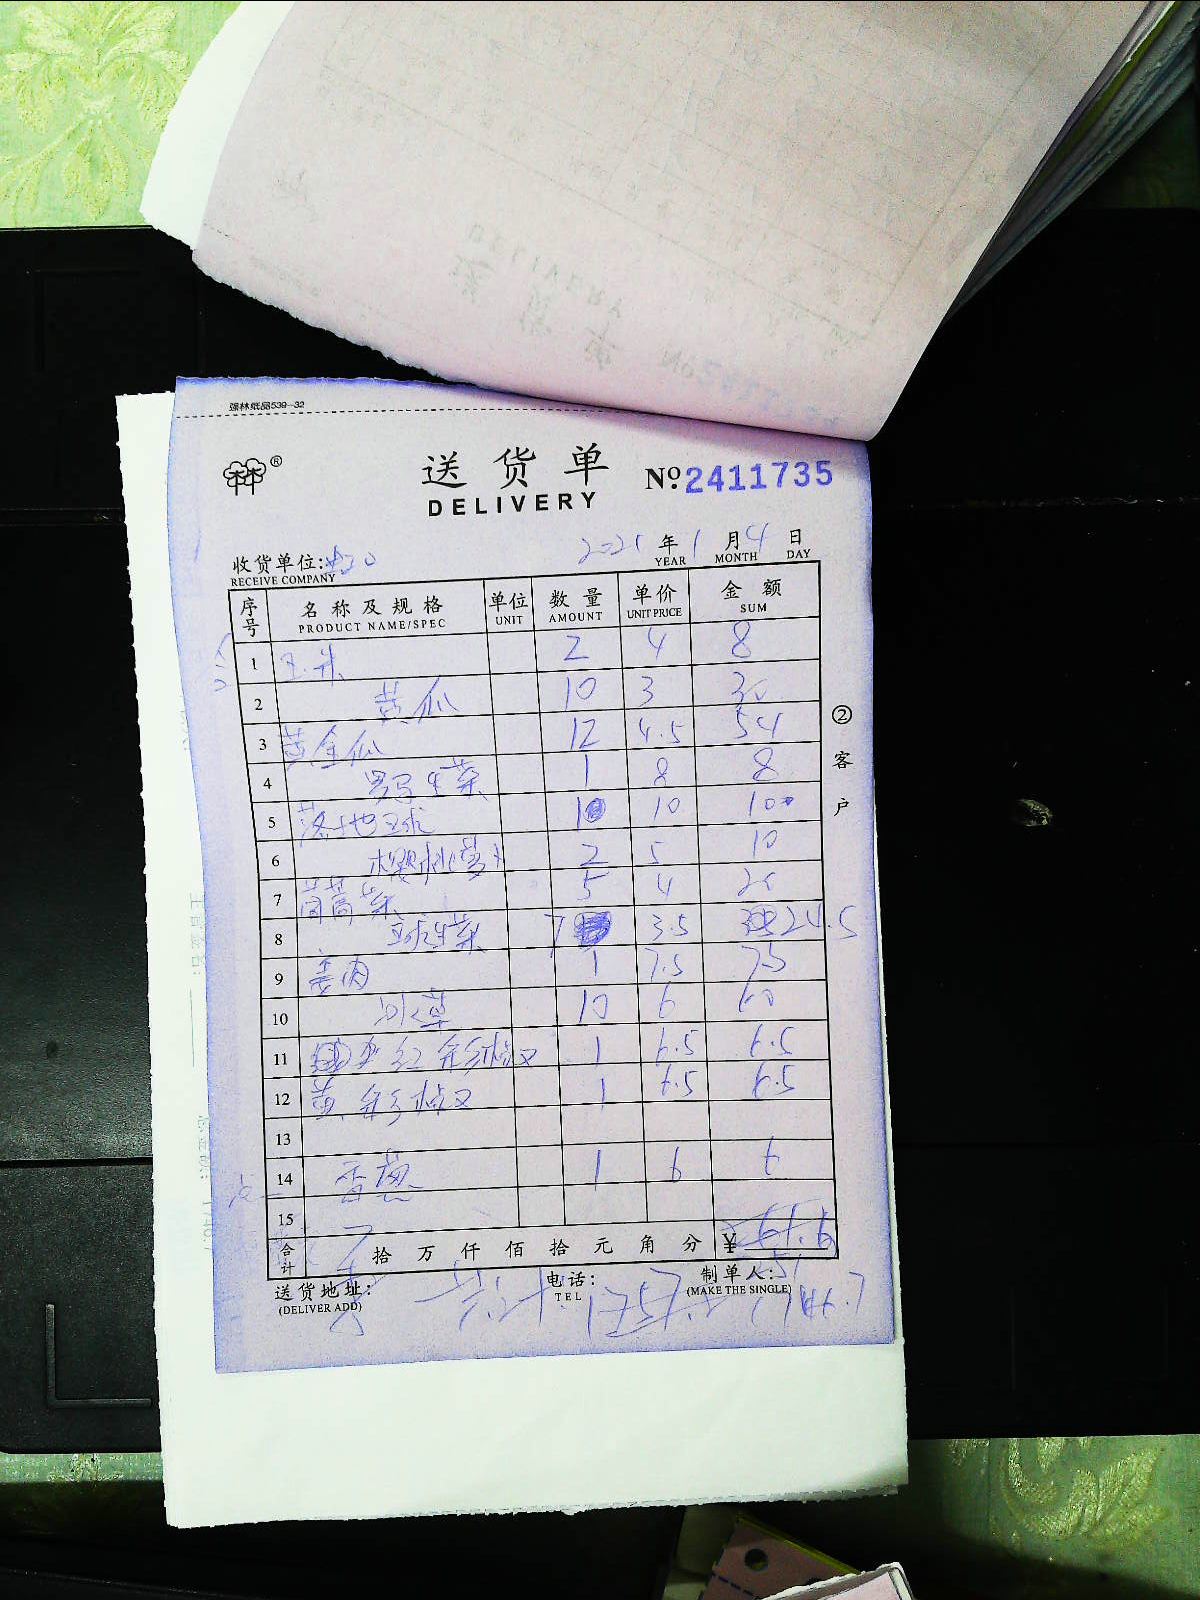 强林纸品539-32
送货单 №2411735
DELIVERY
2021 年 1 月 4 日
YEAR MONTH DAY
收货单位:
RECEIVE COMPANY
序号 名称及规格 单位 数量 单价 金额
PRODUCT NAME/SPEC UNIT AMOUNT UNIT PRICE SUM
1 玉米 2 4 8
2 黄瓜 10 3 30
3 黄金瓜 12 4.5 54
4 罗马生菜 1 8 8
5 落地球 10 10 100
6 樱桃萝卜 2 5 10
7 茼蒿菜 5 4 20
8 球生菜 7 3.5 24.5
9 姜肉 1 7.5 7.5
10 冰草 10 6 60
11 红彩椒 1 6.5 6.5
12 黄彩椒 1 6.5 6.5
13
14 香葱 1 6 6
15
合计 拾 万 仟 佰 拾 元 角 分 ¥
送货地址: 电话: 制单人:
(DELIVER ADD) TEL (MAKE THE SINGLE)
②客户